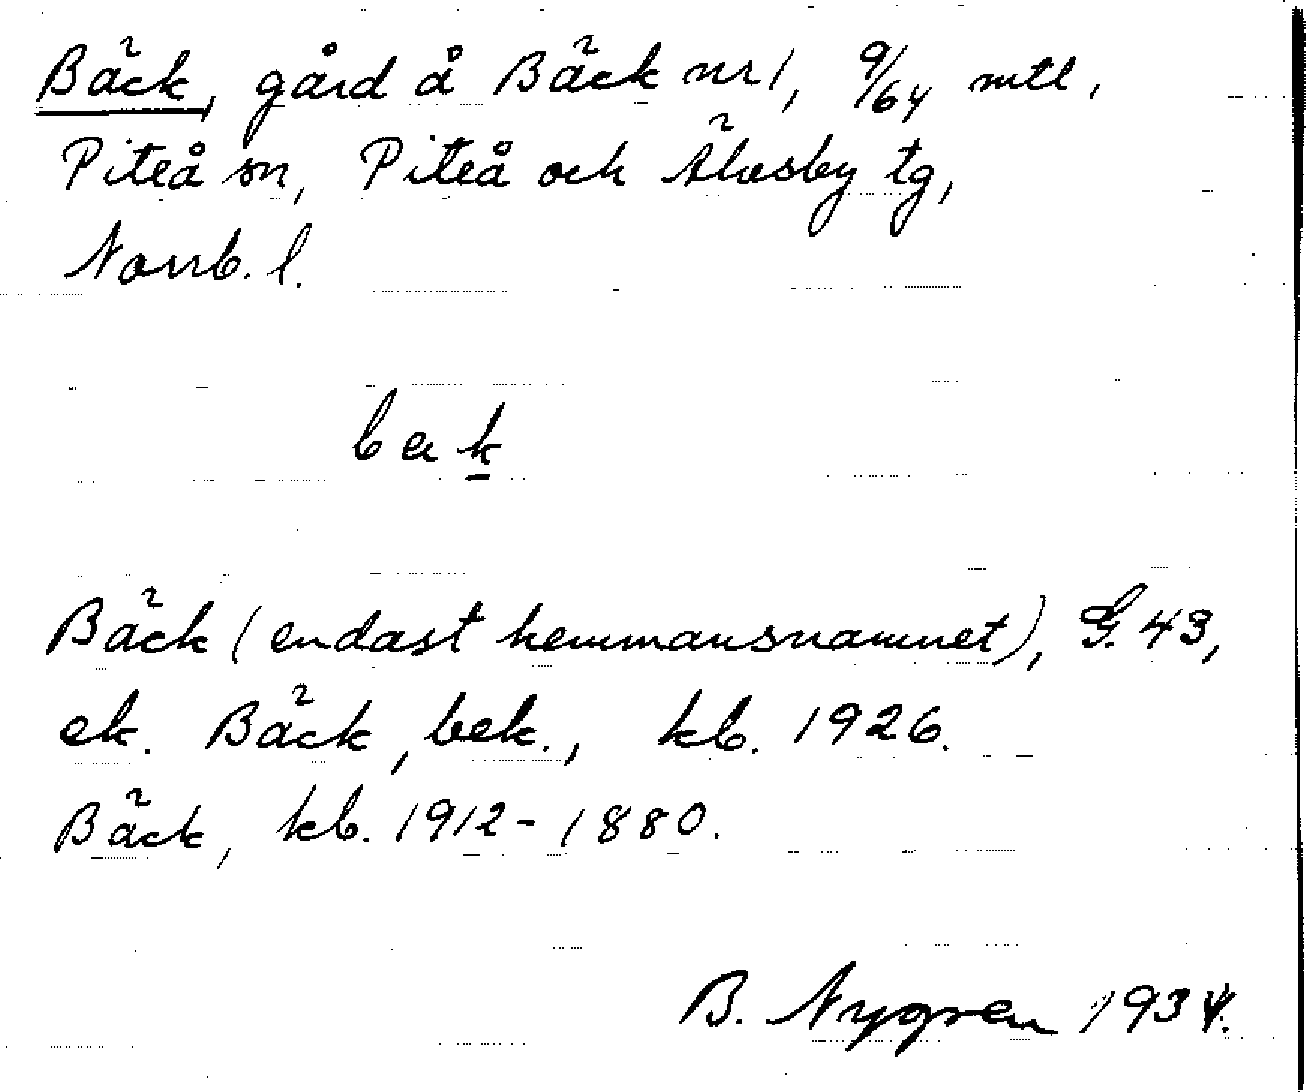 Bäck, gård å Bäck nr 1, 9/64 mtl,
Piteå sn, Piteå och Älvsby tg,
Norrb. l.
bæk
Bäck (endast hemmansnamnet), G. 43,
ek. Bäck, bek., kb. 1926.
Bäck, kb. 1912-1880.
B. Nygren 1934.